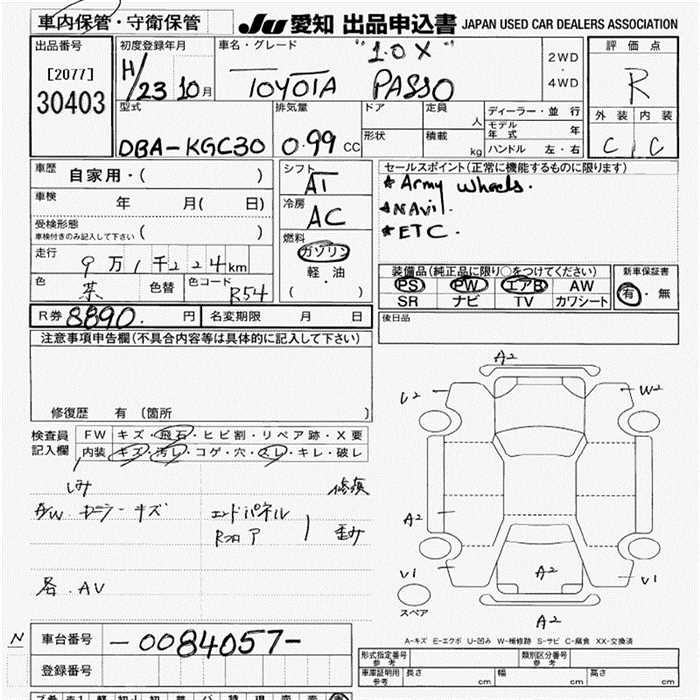 車内保管・守衛保管
JU 愛知 出品申込書 JAPAN USED CAR DEALERS ASSOCIATION
出品番号
[2077]
30403
初度登録年月
H/23 10月
車名・グレード
"1.0X"
TOYOTA PASSO
2WD
・
4WD
評価点
R
外装 内装
C C
型式
DBA-KGC30
排気量
0.99 CC
ドア
形状
定員
人
積載
kg
ディーラー・並行
モデル年式 年
ハンドル 左・右
車歴 自家用・( )
車検 年 月( 日)
受検形態
車検付きのみ記入して下さい ( )
走行
9万1千224km
色
色替
色コード
R54
シフト
AT
冷房
AC
燃料
ガソリン
軽・油
( )
セールスポイント(正常に機能するものに限ります)
★Army wheels.
★NAVi.
★ETC.
装備品(純正品に限り○をつけてください)
PS PW エアB AW
SR ナビ TV カワシート
新車保証書
有・無
R券 8890. 円
名変期限 月 日
後日品
注意事項申告欄(不具合内容等は具体的に記入して下さい)
修復歴 有 [箇所 ]
検査員
記入欄
FW キズ・飛石・ヒビ割・リペア跡・X要
内装 キズ・汚レ・コゲ・穴・スレ・キレ・破レ
シミ
修復
A/W キズ
エンドパネル
Rフロア
歪み
各.AV
A2
W2
A2
V1
A2
V1
A2
スペア
A-キズ E-エクボ U-凹み W-補修跡 S-サビ C-腐食 XX-交換済
N
車台番号
-0084057-
登録番号
形式指定番号
参考
類別区分番号
参考
車庫証明用
参考
長さ cm 幅 cm 高さ cm